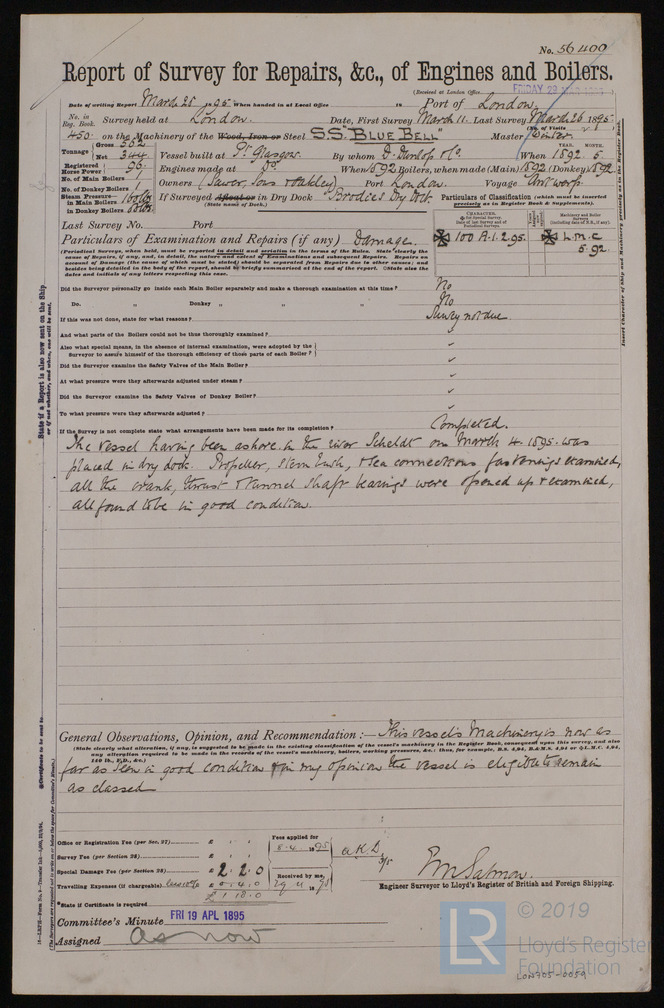 No. 56400
Report of Survey for Repairs, &c., of Engines and Boilers.
(Received at London Office
FRIDAY 29 MAR 1895
Date of writing Report March 28 1895 When handed in at Local Office 18 Port of London.
No. in Reg. Book. Survey held at London. Date, First Survey March 11. Last Survey March 26 1895.
(No. of Visits
450. on the Machinery of the Wood, Iron or Steel S.S. "BLUE BELL" Master
Tonnage Gross 562 Net 344 Vessel built at Pt. Glasgow. By whom D. Dunlop & Co. When 1892. 5.
YEAR. MONTH.
Registered Horse Power 96 Engines made at Do. When 1892 Boilers, when made (Main) 1892 (Donkey) 1892
No. of Main Boilers 1 Owners Port London. Voyage Antwerp.
No. of Donkey Boilers 1
Steam Pressure in Main Boilers 160 lbs If Surveyed Afloat or in Dry Dock Brodies Dry Dock.
in Donkey Boilers (State name of Dock.)
Particulars of Classification (which must be inserted precisely as in Register Book & Supplements).
Last Survey No. Port
CHARACTER.
Machinery and Boiler Surveys
✠ 100 A.1. 2.95. ✠ L.M.C 5.92.
Particulars of Examination and Repairs (if any) Damage.
(Periodical Surveys, when held, must be reported in detail and seriatim in the terms of the Rules. State clearly the cause of Repairs, if any, and, in detail, the nature and extent of Examinations and subsequent Repairs. Repairs on account of Damage (the cause of which must be stated) should be separated from Repairs due to other causes; and besides being detailed in the body of the report, should be briefly summarised at the end of the report. State also the dates and initials of any letters respecting this case.
Did the Surveyor personally go inside each Main Boiler separately and make a thorough examination at this time? No
Do. " Donkey " " " No
If this was not done, state for what reasons? Survey not due
And what parts of the Boilers could not be thus thoroughly examined?
Also what special means, in the absence of internal examination, were adopted by the Surveyor to assure himself of the thorough efficiency of those parts of each Boiler? ✓
Did the Surveyor examine the Safety Valves of the Main Boiler? ✓
At what pressure were they afterwards adjusted under steam? ✓
Did the Surveyor examine the Safety Valves of Donkey Boiler? ✓
To what pressure were they afterwards adjusted? ✓
If the Survey is not complete state what arrangements have been made for its completion? Completed.
The Vessel having been ashore in the river Scheldt on March 4. 1895. was
placed in dry dock. Propeller, stern bush, & sea connections, fastenings examined,
all the crank, thrust & tunnel shaft bearings were opened up & examined,
all found to be in good condition.
General Observations, Opinion, and Recommendation:— This vessel's Machinery is now as
(State clearly what alteration, if any, is suggested to be made in the existing classification of the vessel's machinery in the Register Book, consequent upon this survey, and also any alteration required to be made in the records of the vessel's machinery, boilers, working pressures, &c.; thus, for example, B.S. 4,94, B.&M.S. 4,94 or ✠ L.M.C. 4,94, 140 lb., F.D., &c.)
far as seen in good condition & in my opinion the vessel is eligible to remain
as classed
Office or Registration Fee (per Sec. 27) £ : :
Survey Fee (per Section 28) £ : :
Special Damage Fee (per Section 28) £ 2 : 2 : 0
Travelling Expenses (if chargeable) less 10% £ 0 : 4 : 0
£ 1 18.0
Fees applied for 5.4.1895
Received by me,
State if Certificate is required
E.M. Salmon.
Engineer Surveyor to Lloyd's Register of British and Foreign Shipping.
Committee's Minute FRI 19 APL 1895
Assigned as now
State if a Report is also now sent on the Ship
or if not whether, and when, one will be sent.
Insert Character of Ship and Machinery precisely as in the Register Book.
LR
© 2019
Lloyd's Register
Foundation
LON705-0059